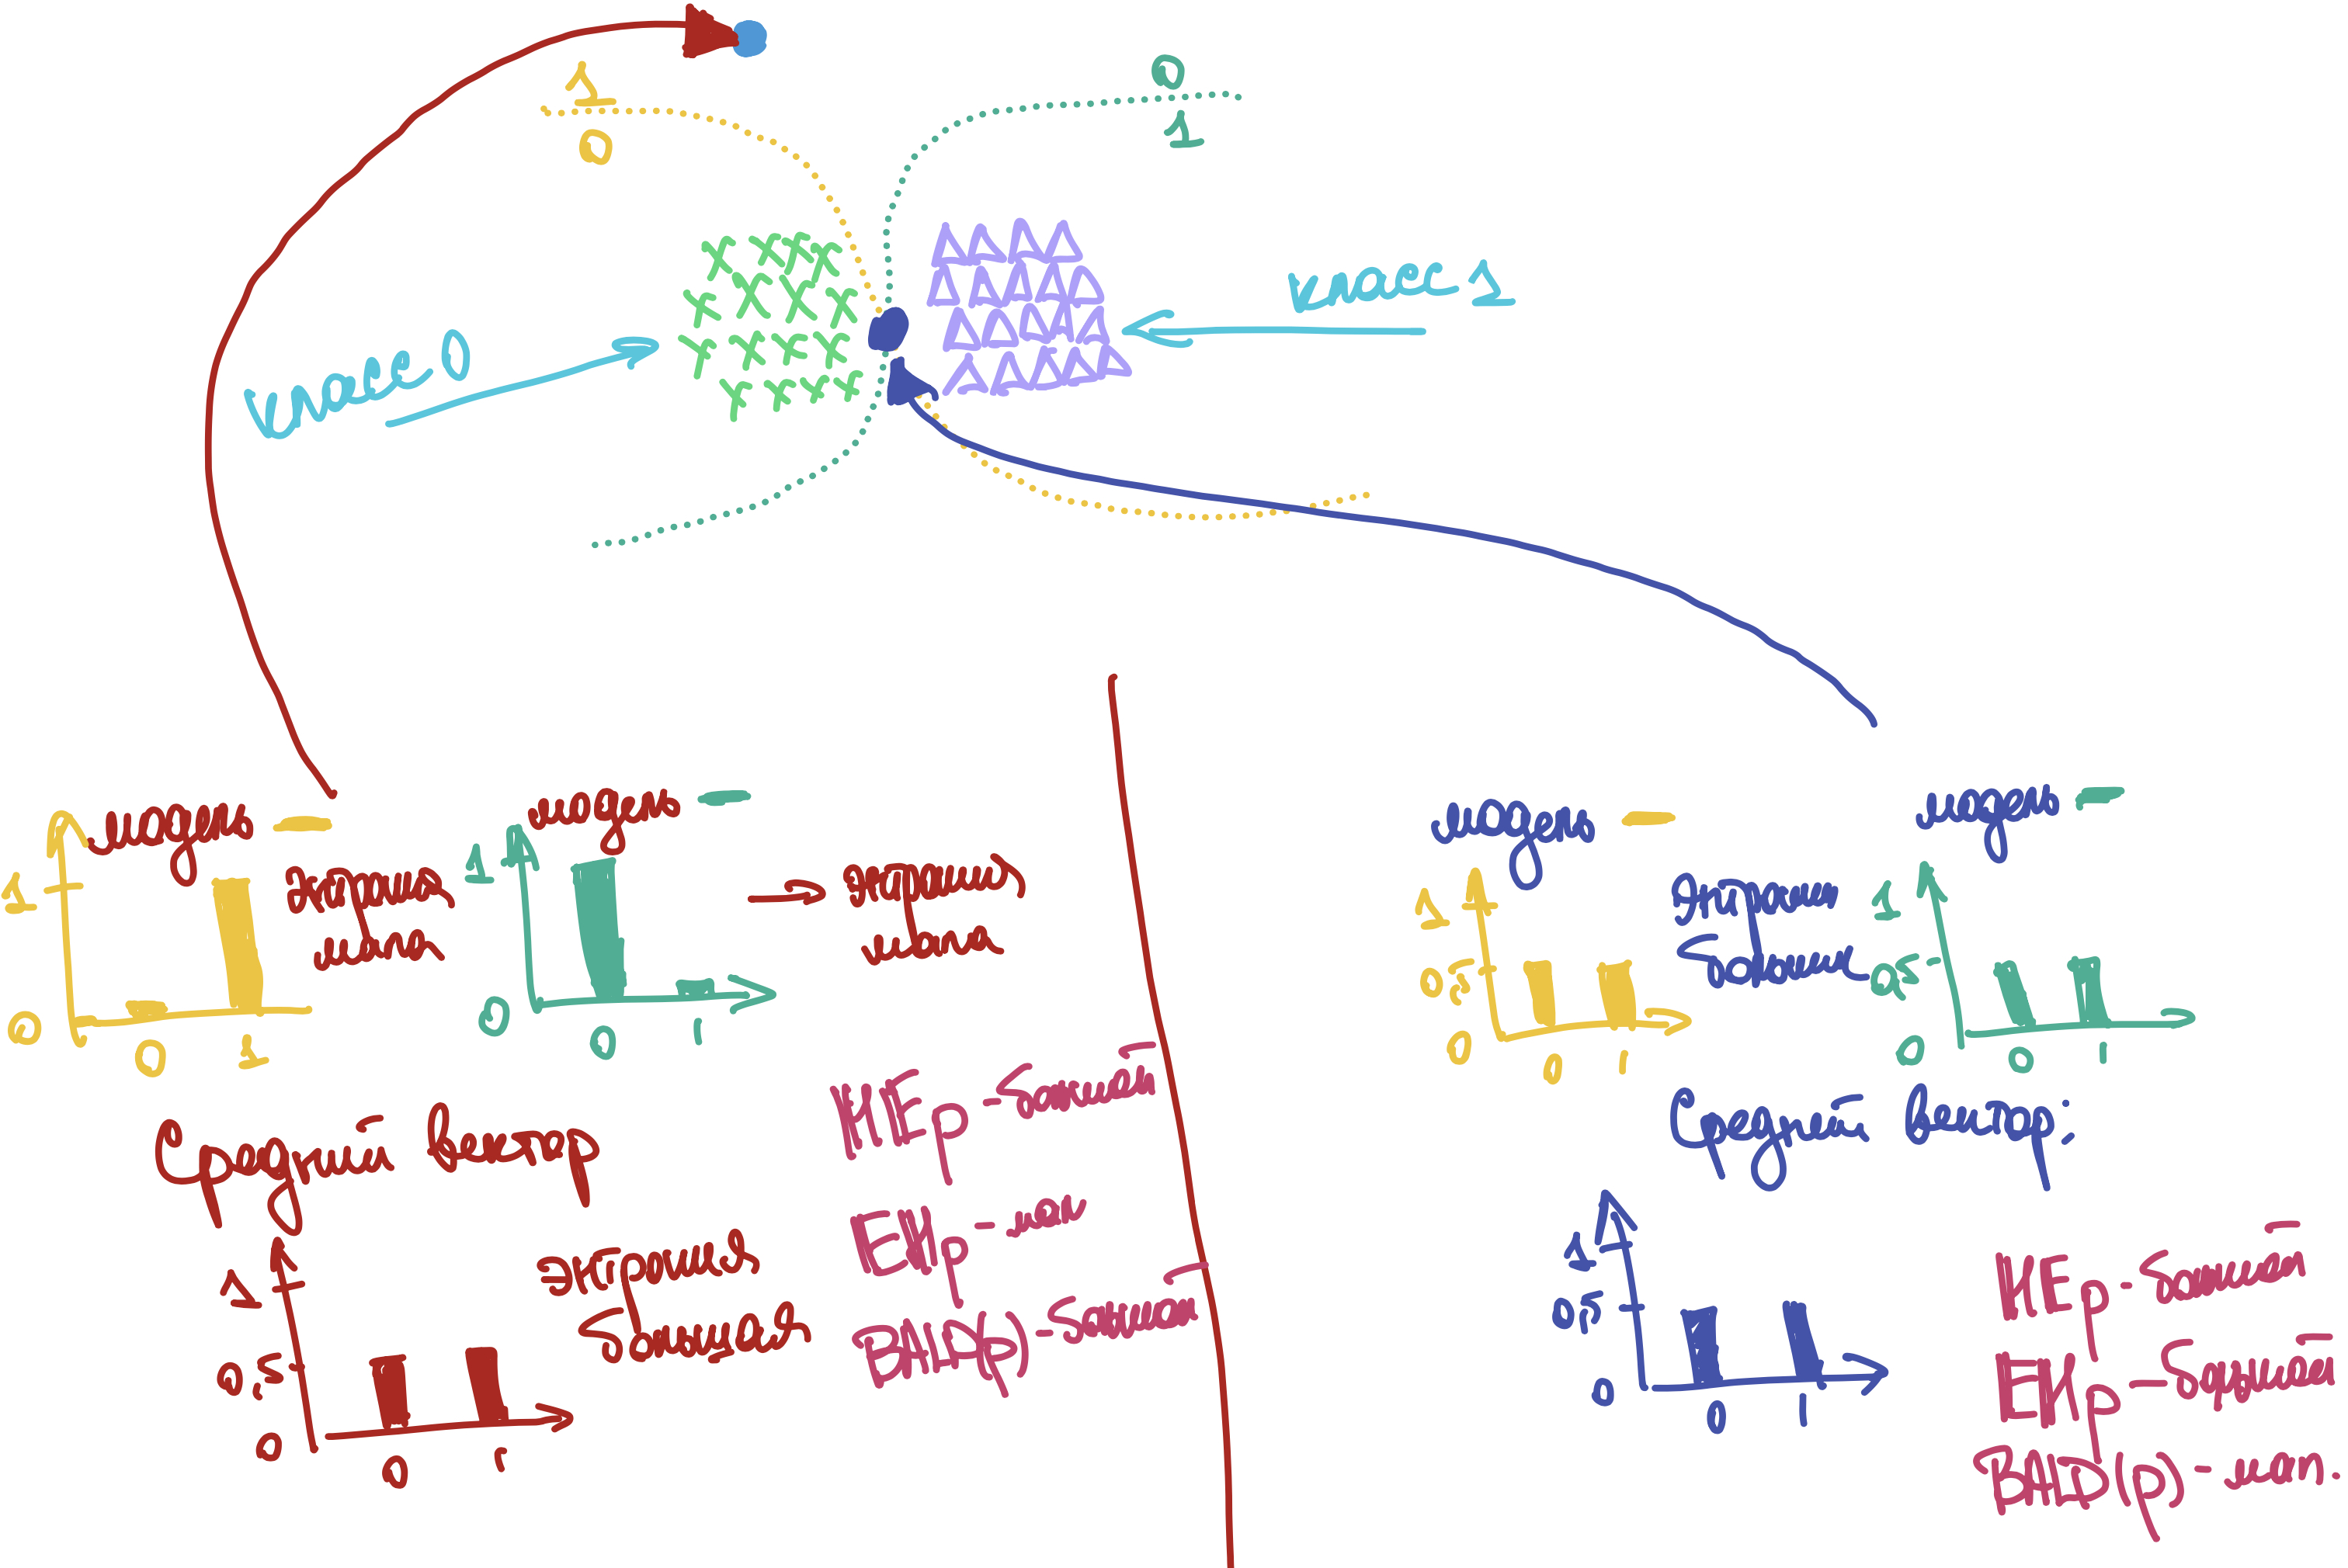 1
0
0
1
класс 0
класс 1
модель
энтропия
мала
1
0
0
1
модель
1
0
0
1
энтропия
мала
Средний вектор
1
0,5
0
0
1
энтропия
большая
HEp - большой
EHp - мал
BALD(p) - большая
модель
энтропия
большая
1
0,5
0
0
1
модель
1
0,5
0
0
1
Средний вектор:
1
0,5
0
0
1
HEp - большой
EHp - большая
BALD(p) - мал.